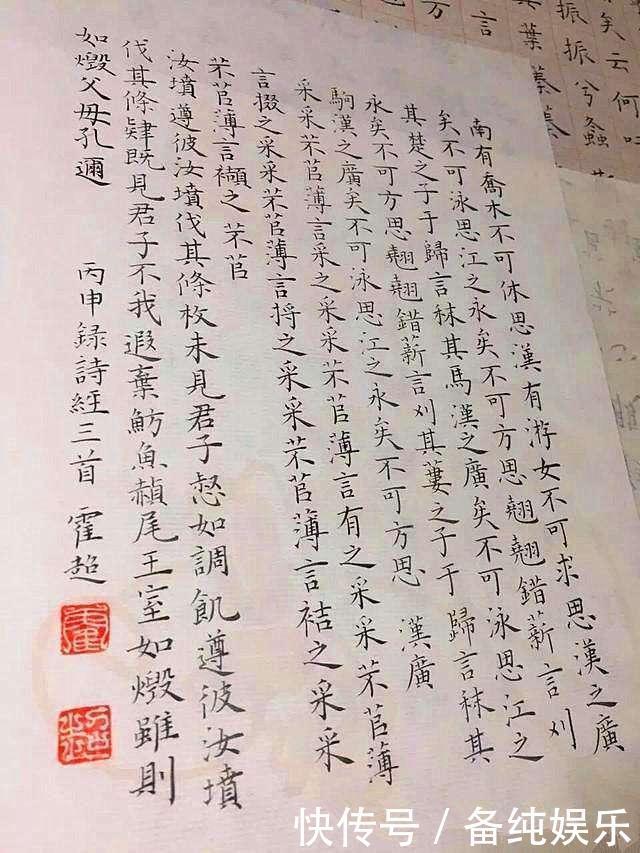 矣云何吁
振振兮螽
其葉蓁蓁
南有喬木不可休思漢有游女不可求思漢之廣
矣不可泳思江之永矣不可方思翹翹錯薪言刈
其楚之子于歸言秣其馬漢之廣矣不可泳思江之
永矣不可方思翹翹錯薪言刈其蔞之子于歸言秣其
駒漢之廣矣不可泳思江之永矣不可方思 漢廣
采采芣苢薄言采之采采芣苢薄言有之采采芣苢薄
言掇之采采芣苢薄言捋之采采芣苢薄言袺之采采
芣苢薄言襭之 芣苢
汝墳遵彼汝墳伐其條枚未見君子惄如調飢遵彼汝墳
伐其條肄既見君子不我遐棄魴魚赬尾王室如燬雖則
如燬父母孔邇 丙申録詩經三首 霍超
快传号/备纯娱乐